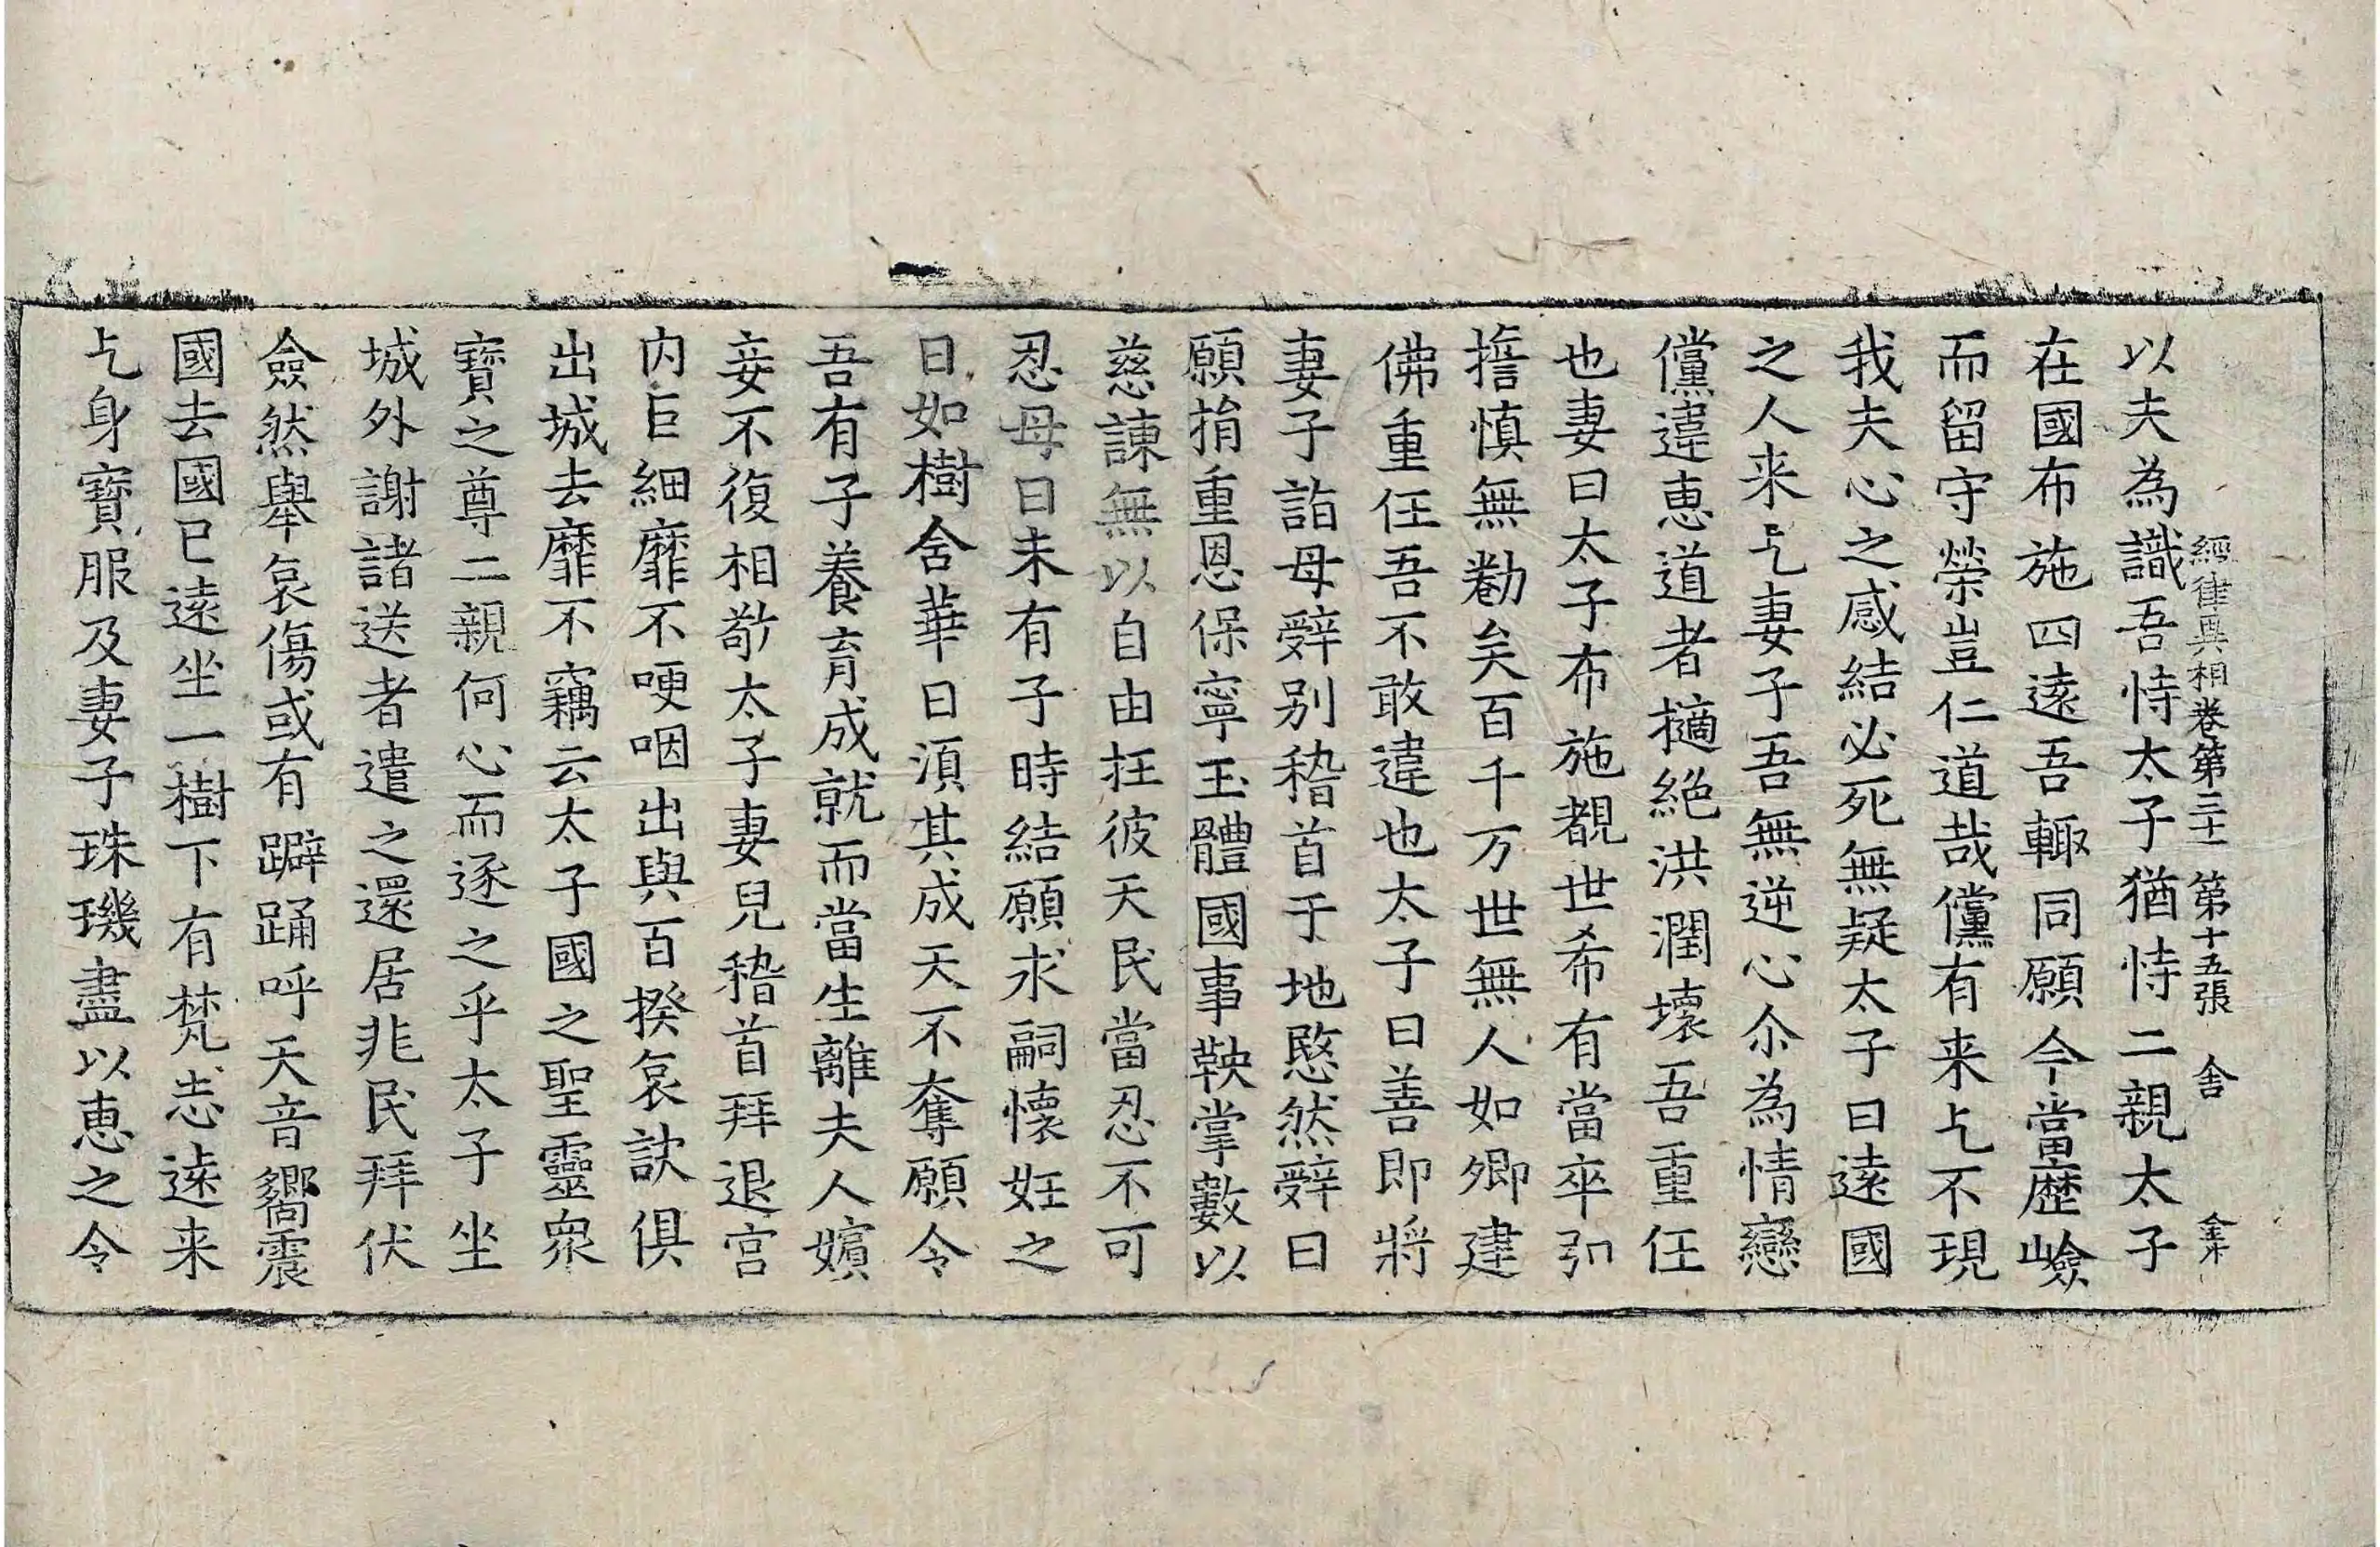 經律異相卷第三十一 第十五張 舍
以夫為識吾恃太子猶恃二親太子
在國布施四遠吾輙同願今當歷嶮
而留守榮豈仁道哉儻有来乞不現
我夫心之感結必死無疑太子曰遠國
之人来乞妻子吾無逆心尒為情戀
儻違惠道者擿絕洪潤壞吾重任
也妻曰太子布施覩世希有當卒弘
擔慎無勌矣百千万世無人如卿建
佛重任吾不敢違也太子曰善即將
妻子詣母辭别稽首于地愍然辭曰
願捐重恩保寧玉體國事鞅掌數以
慈諫無以自由抂彼天民當忍不可
忍母曰未有子時結願求嗣懷妊之
日如樹含華日湏其成天不奪願令
吾有子養育成就而當生離夫人嬪
妾不復相敬太子妻兒稽首拜退宫
内巨細靡不哽咽出與百揆哀訣俱
出城去靡不竊云太子國之聖靈衆
寶之尊二親何心而逐之乎太子坐
城外謝諸送者遣之還居兆民拜伏
僉然舉哀傷或有躃踊呼天音嚮震
國去國已遠坐一樹下有梵志逺来
乞身寶服及妻子珠璣盡以惠之令